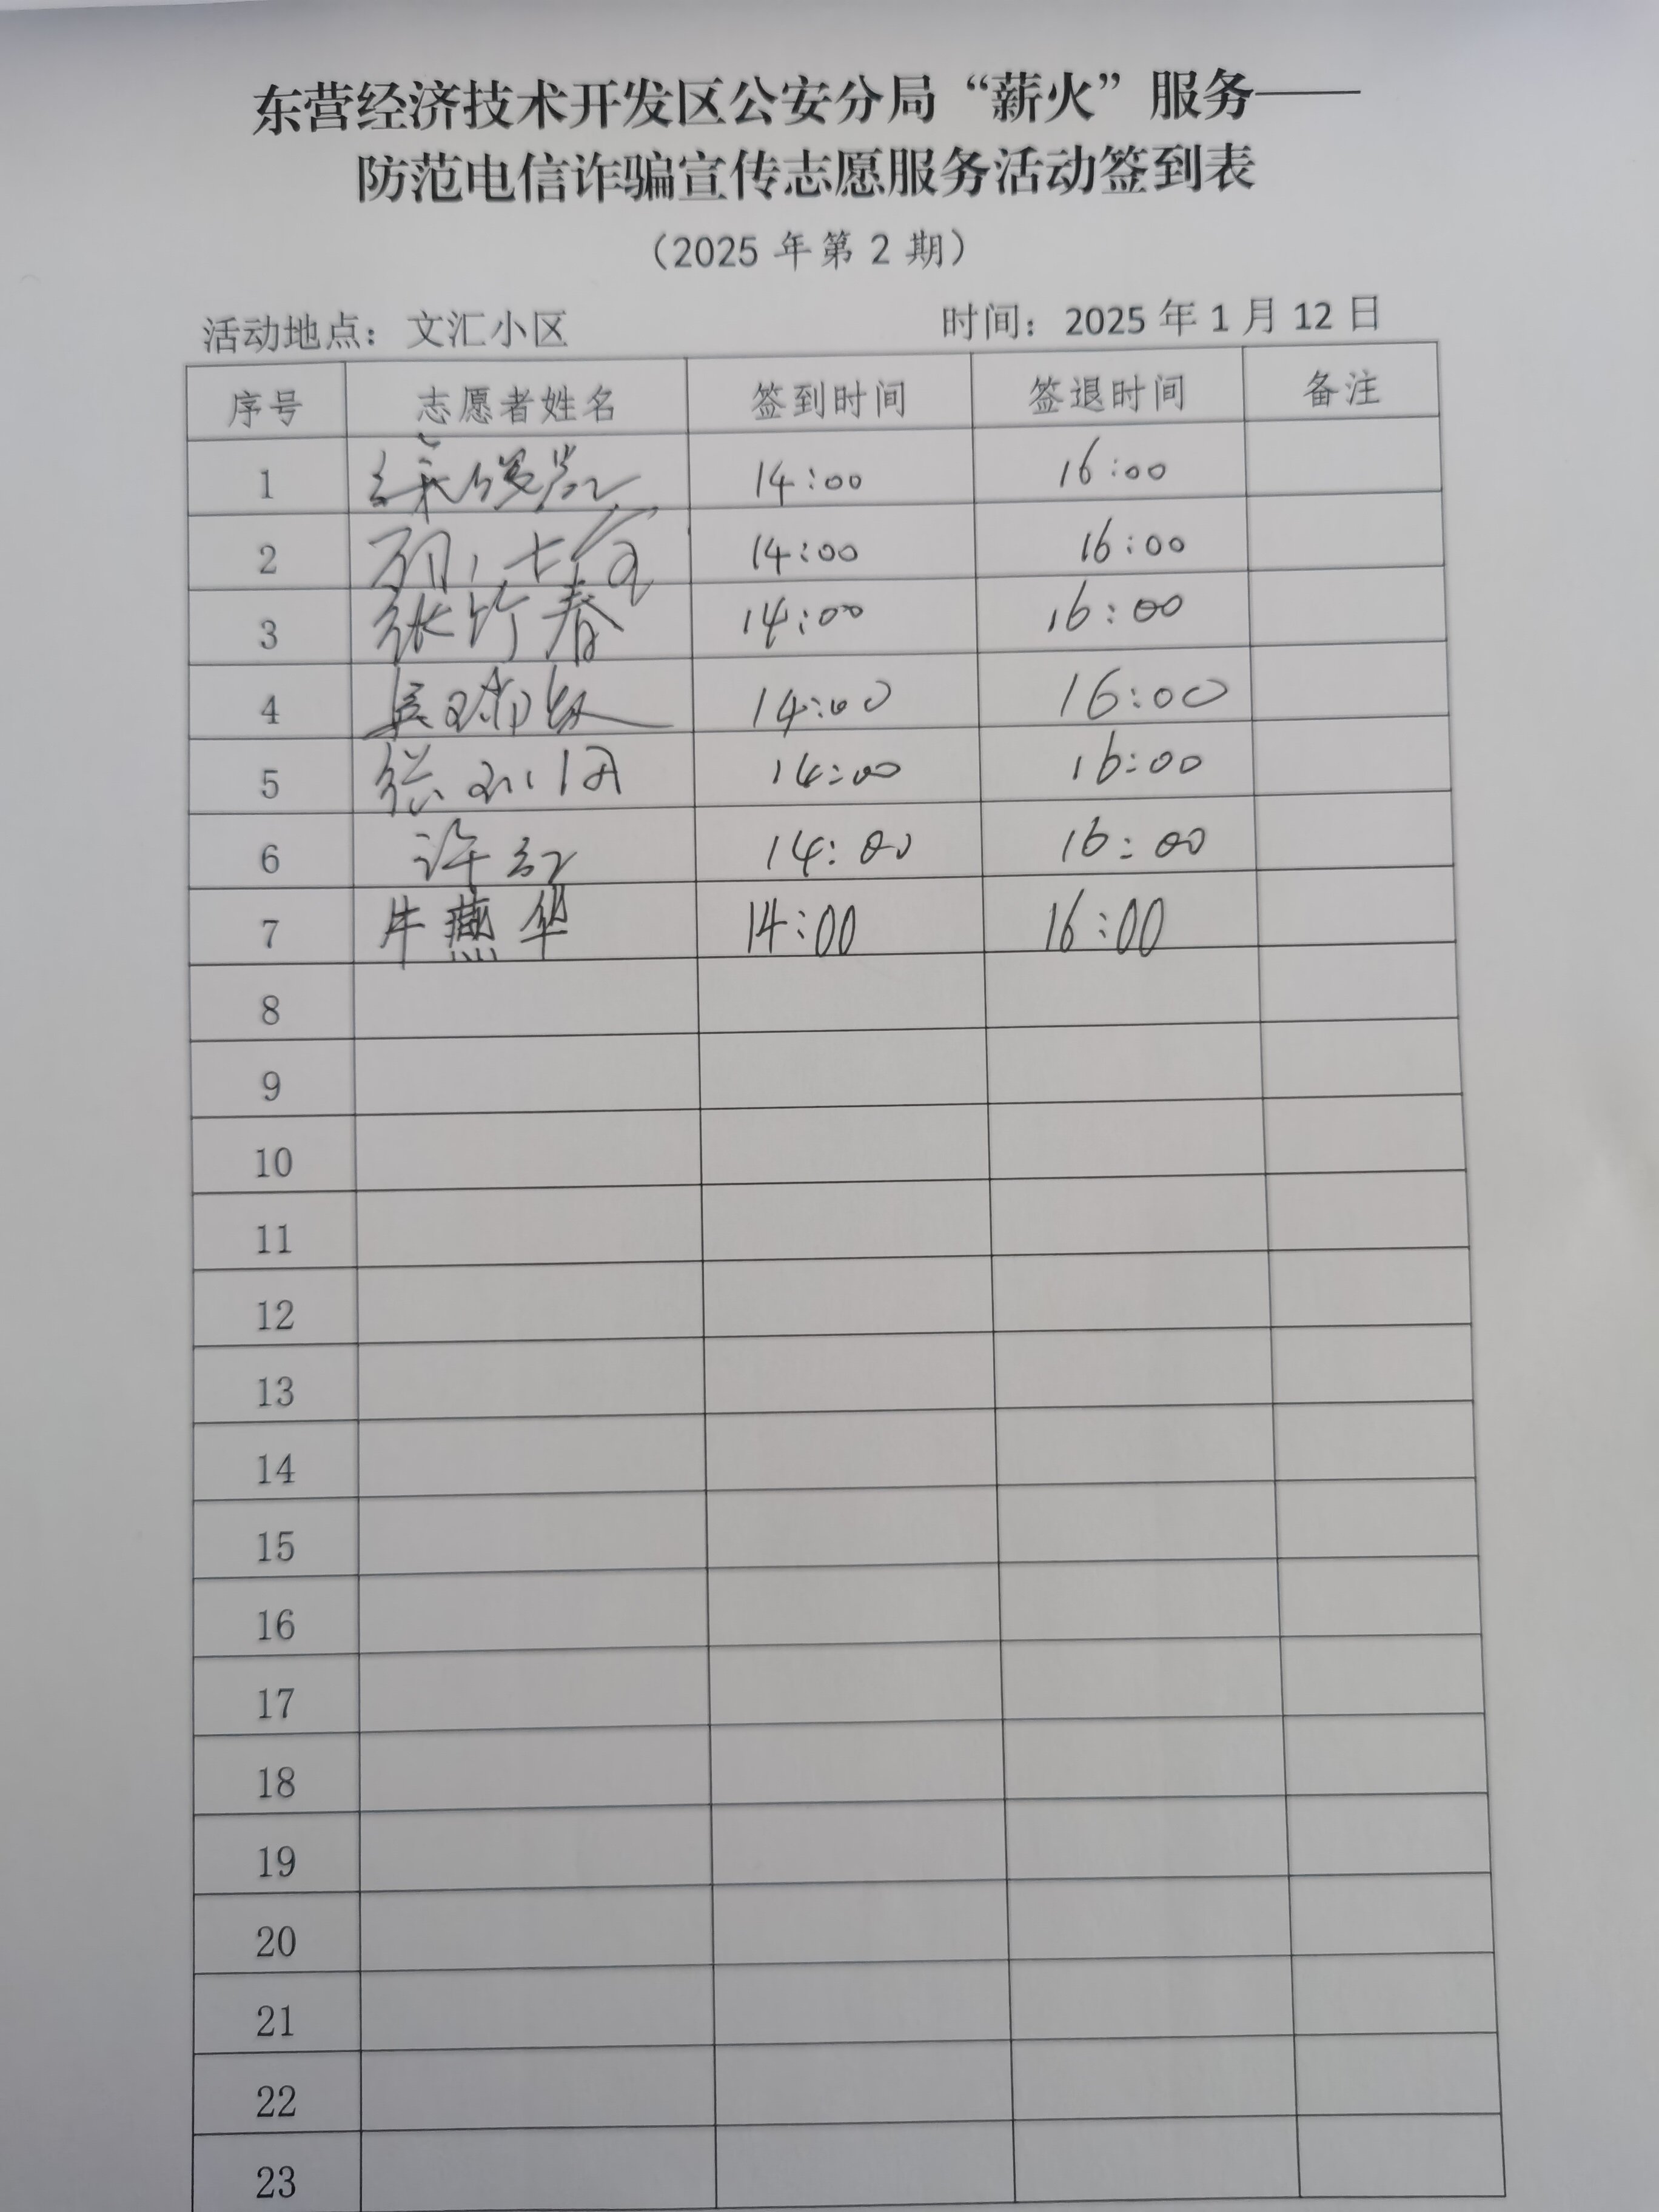 东营经济技术开发区公安分局“薪火”服务——
防范电信诈骗宣传志愿服务活动签到表
（2025 年第 2 期）
活动地点：文汇小区 时间：2025 年 1 月 12 日
序号 志愿者姓名 签到时间 签退时间 备注
1 14:00 16:00
2 14:00 16:00
3 张竹春 14:00 16:00
4 14:00 16:00
5 张 14:00 16:00
6 许红 14:00 16:00
7 牛燕华 14:00 16:00
8
9
10
11
12
13
14
15
16
17
18
19
20
21
22
23